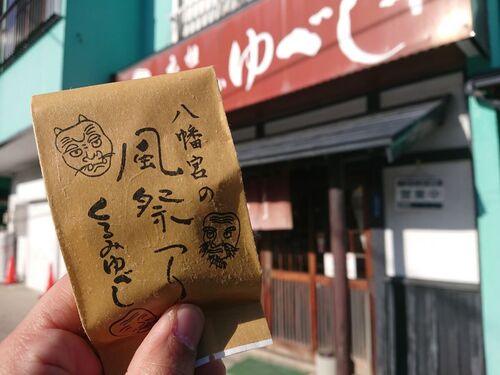 ゆべし
八幡宮の
風祭り
くるみゆべし